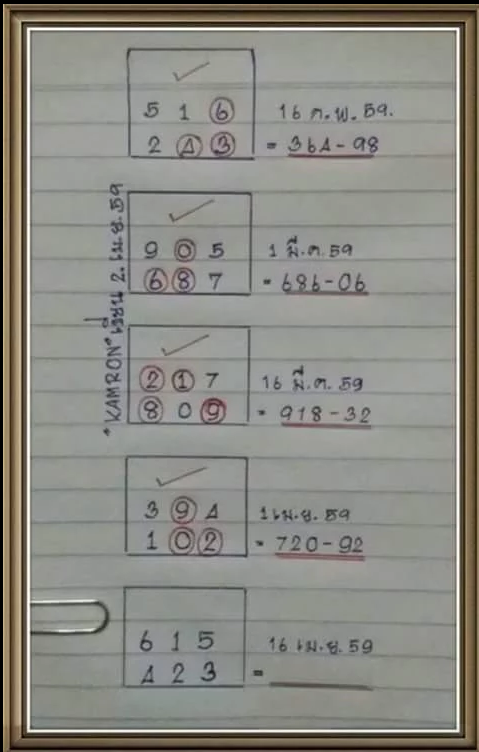 5 1 6 16 ก.พ. 59.
2 4 3 = 364-98
9 0 5 1 มี.ค. 59
6 8 7 = 686-06
2 1 7 16 มี.ค. 59
8 0 9 = 918-32
3 9 4 1 เม.ย. 59
1 0 2 = 720-92
6 1 5 16 เม.ย. 59
4 2 3 =
"KAMRON" เขียน 2. เม.ย. 59